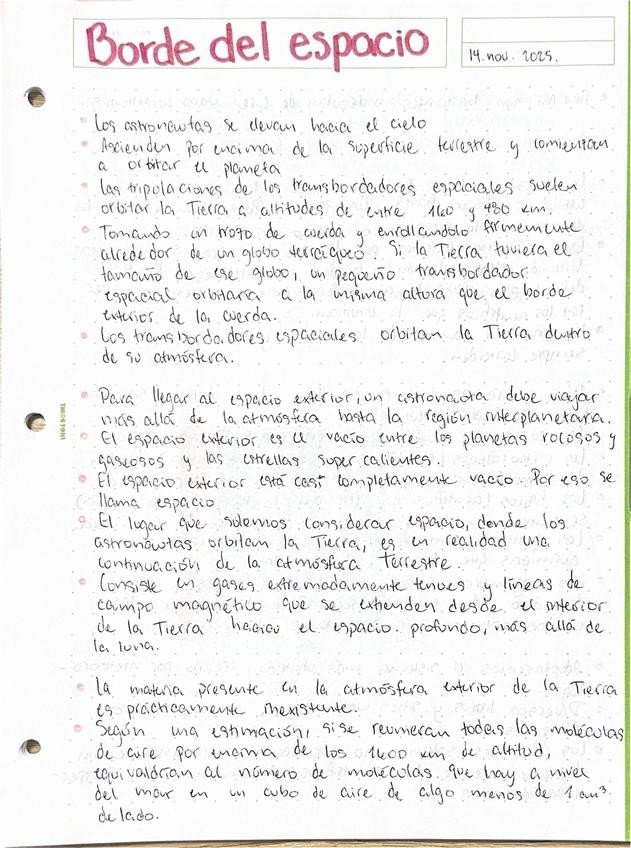 Borde del espacio
14. nov. 2025.
Los astronautas se elevan hacia el cielo
Ascienden por encima de la superficie terrestre y comienzan
a orbitar el planeta
Las tripulaciones de los transbordadores espaciales suelen
orbitar la Tierra a altitudes de entre 160 y 480 km.
Tomando un trozo de cuerda y enrollandolo firmemente
alrededor de un globo terráqueo. Si la Tierra tuviera el
tamaño de ese globo, un pequeño transbordador
espacial orbitaria a la misma altura que el borde
exterior de la cuerda.
Los transbordadores espaciales orbitan la Tierra dentro
de su atmósfera.
Para llegar al espacio exterior, un astronauta debe viajar
más allá de la atmósfera hasta la región interplanetaria.
El espacio exterior es el vacío entre los planetas rocosos y
gaseosos y las estrellas super calientes.
El espacio exterior está casi completamente vacío. Por eso se
llama espacio
El lugar que solemos considerar espacio, donde los
astronautas orbitan la Tierra, es en realidad una
continuación de la atmósfera Terrestre.
Consiste en gases extremadamente tenues y líneas de
campo magnético que se extienden desde el interior
de la Tierra hacia el espacio profundo, más allá de
la luna.
La materia presente en la atmósfera exterior de la Tierra
es prácticamente inexistente.
Según una estimación, si se reunieran todas las moléculas
de aire por encima de los 1600 km de altitud,
equivaldrían al número de moléculas que hay a nivel
del mar en un cubo de aire de algo menos de 1 cm³
de lado.